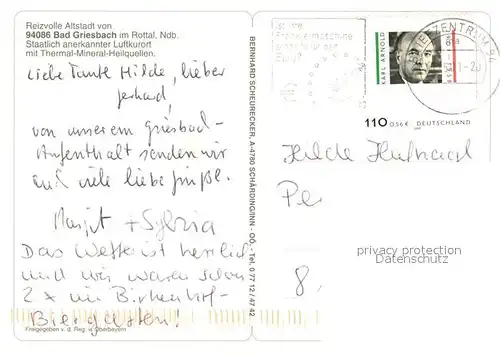 Reizvolle Altstadt von
94086 Bad Griesbach im Rottal, Ndb.
Staatlich anerkannter Luftkurort
mit Thermal-Mineral-Heilquellen.
Liebe Tante Hilde, lieber
Gerhard,
von unserem Griesbach-
Aufenthalt senden wir
euch viele liebe Grüße.
Margit + Sylvia
Das Wetter ist herrlich
und wir waren schon
2 x im Birkenhof-
Biergarten!
Freigegeben v. d. Reg. v. Oberbayern
BERNHARD SCHEURECKER, A-4780 SCHÄRDING/INN - OÖ. - Tel. 0 77 12 / 47 42
BRIEFZENTRUM 94
KARL ARNOLD
110 0,56€ DEUTSCHLAND
Hilde
Pe
privacy protection
Datenschutz
8